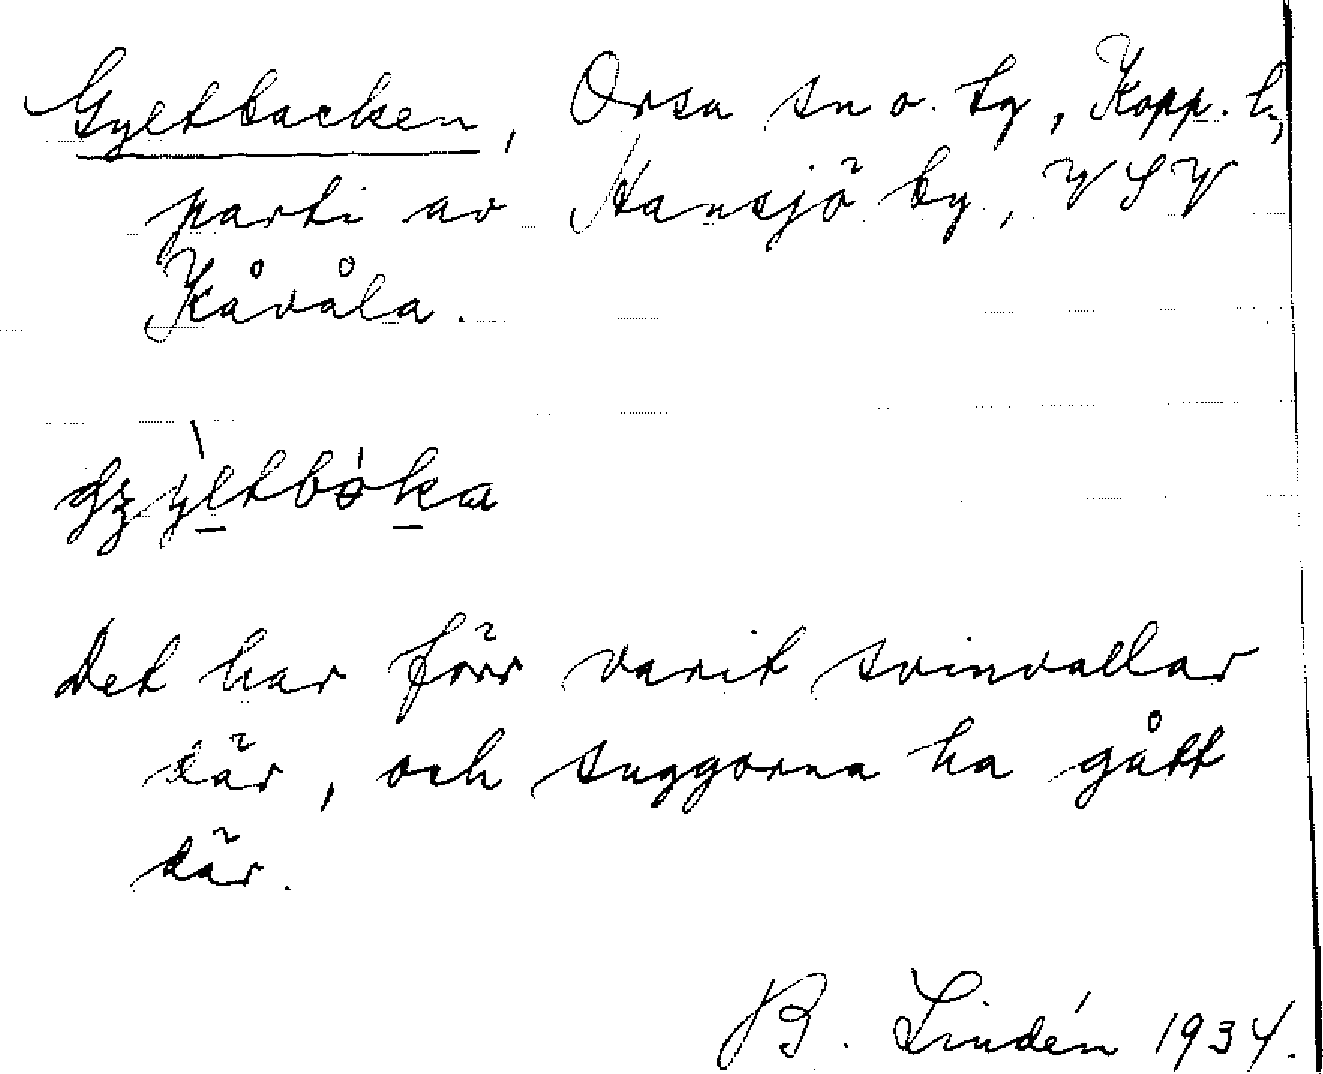 Gyltbacken, Orsa sn o. tg, Kopp. l.,
parti av Hansjö by., VSV
Kåvåla.
Det har förr varit svinvallar
där, och suggorna ha gått
där.
B. Lindén 1934.